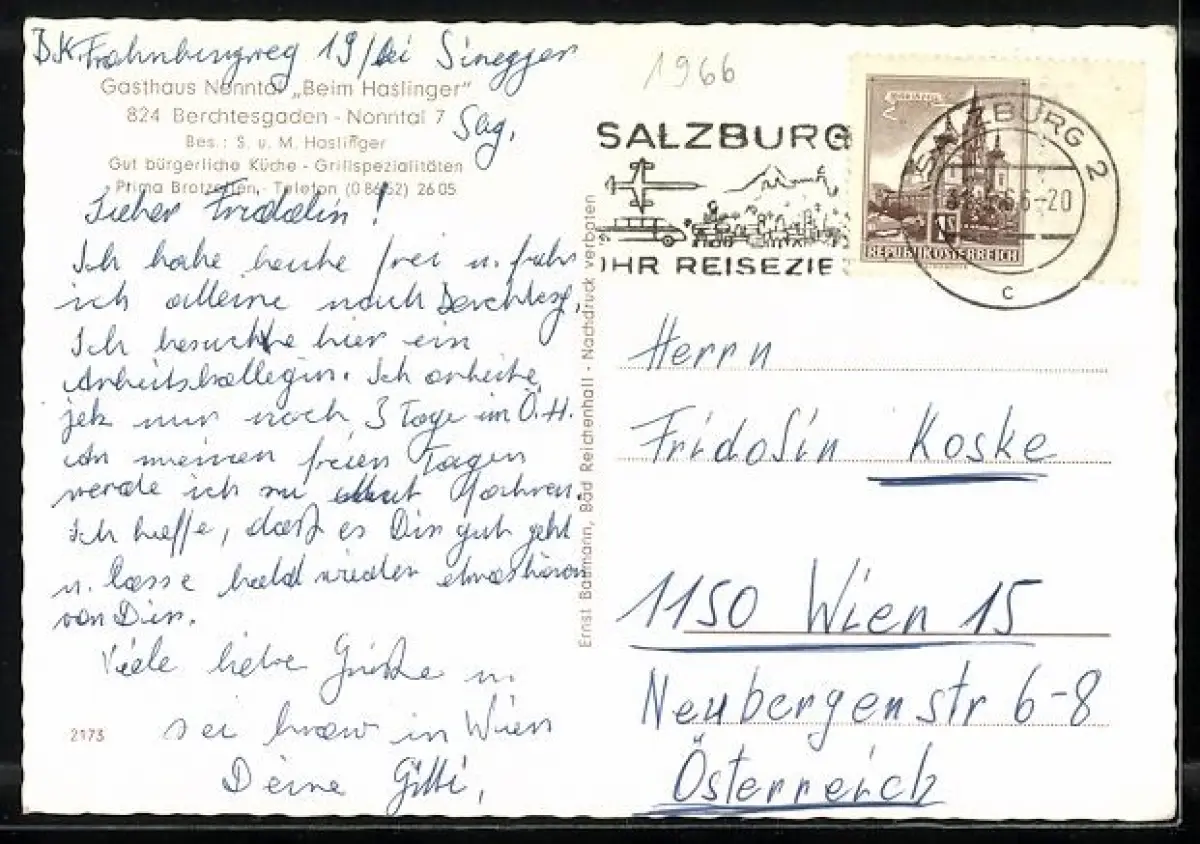 B.K. Frohnburgweg 19/bei Sinegger
Sbg.
1966
Gasthaus Nonntal „Beim Haslinger"
824 Berchtesgaden - Nonntal 7
Bes.: S. u. M. Haslinger
Gut bürgerliche Küche - Grillspezialitäten
Prima Brotzeiten, - Telefon (0 86 52) 26 05
Lieber Fridolin!
Ich habe heute frei u. fahr
ich alleine nach Berchtesg.
Ich besuche hier ein
Arbeitskollegin. Ich arbeite
jetz nur noch 3 Tage im Ö.H.
An meinen freien Tagen
werde ich zu
Ich hoffe, daß es Dir gut geht
u. lasse bald wieder etwas hören
von Dir.
Viele liebe Grüße u.
sei brav in Wien
Deine Gitti,
2173
Ernst Baumann, Bad Reichenhall - Nachdruck verboten
SALZBURG
IHR REISEZIE
MARIAZELL
REPUBLIK ÖSTERREICH
SALZBURG 2
66-20
c
Herrn
Fridolin Koske
1150 Wien 15
Neubergenstr 6-8
Österreich